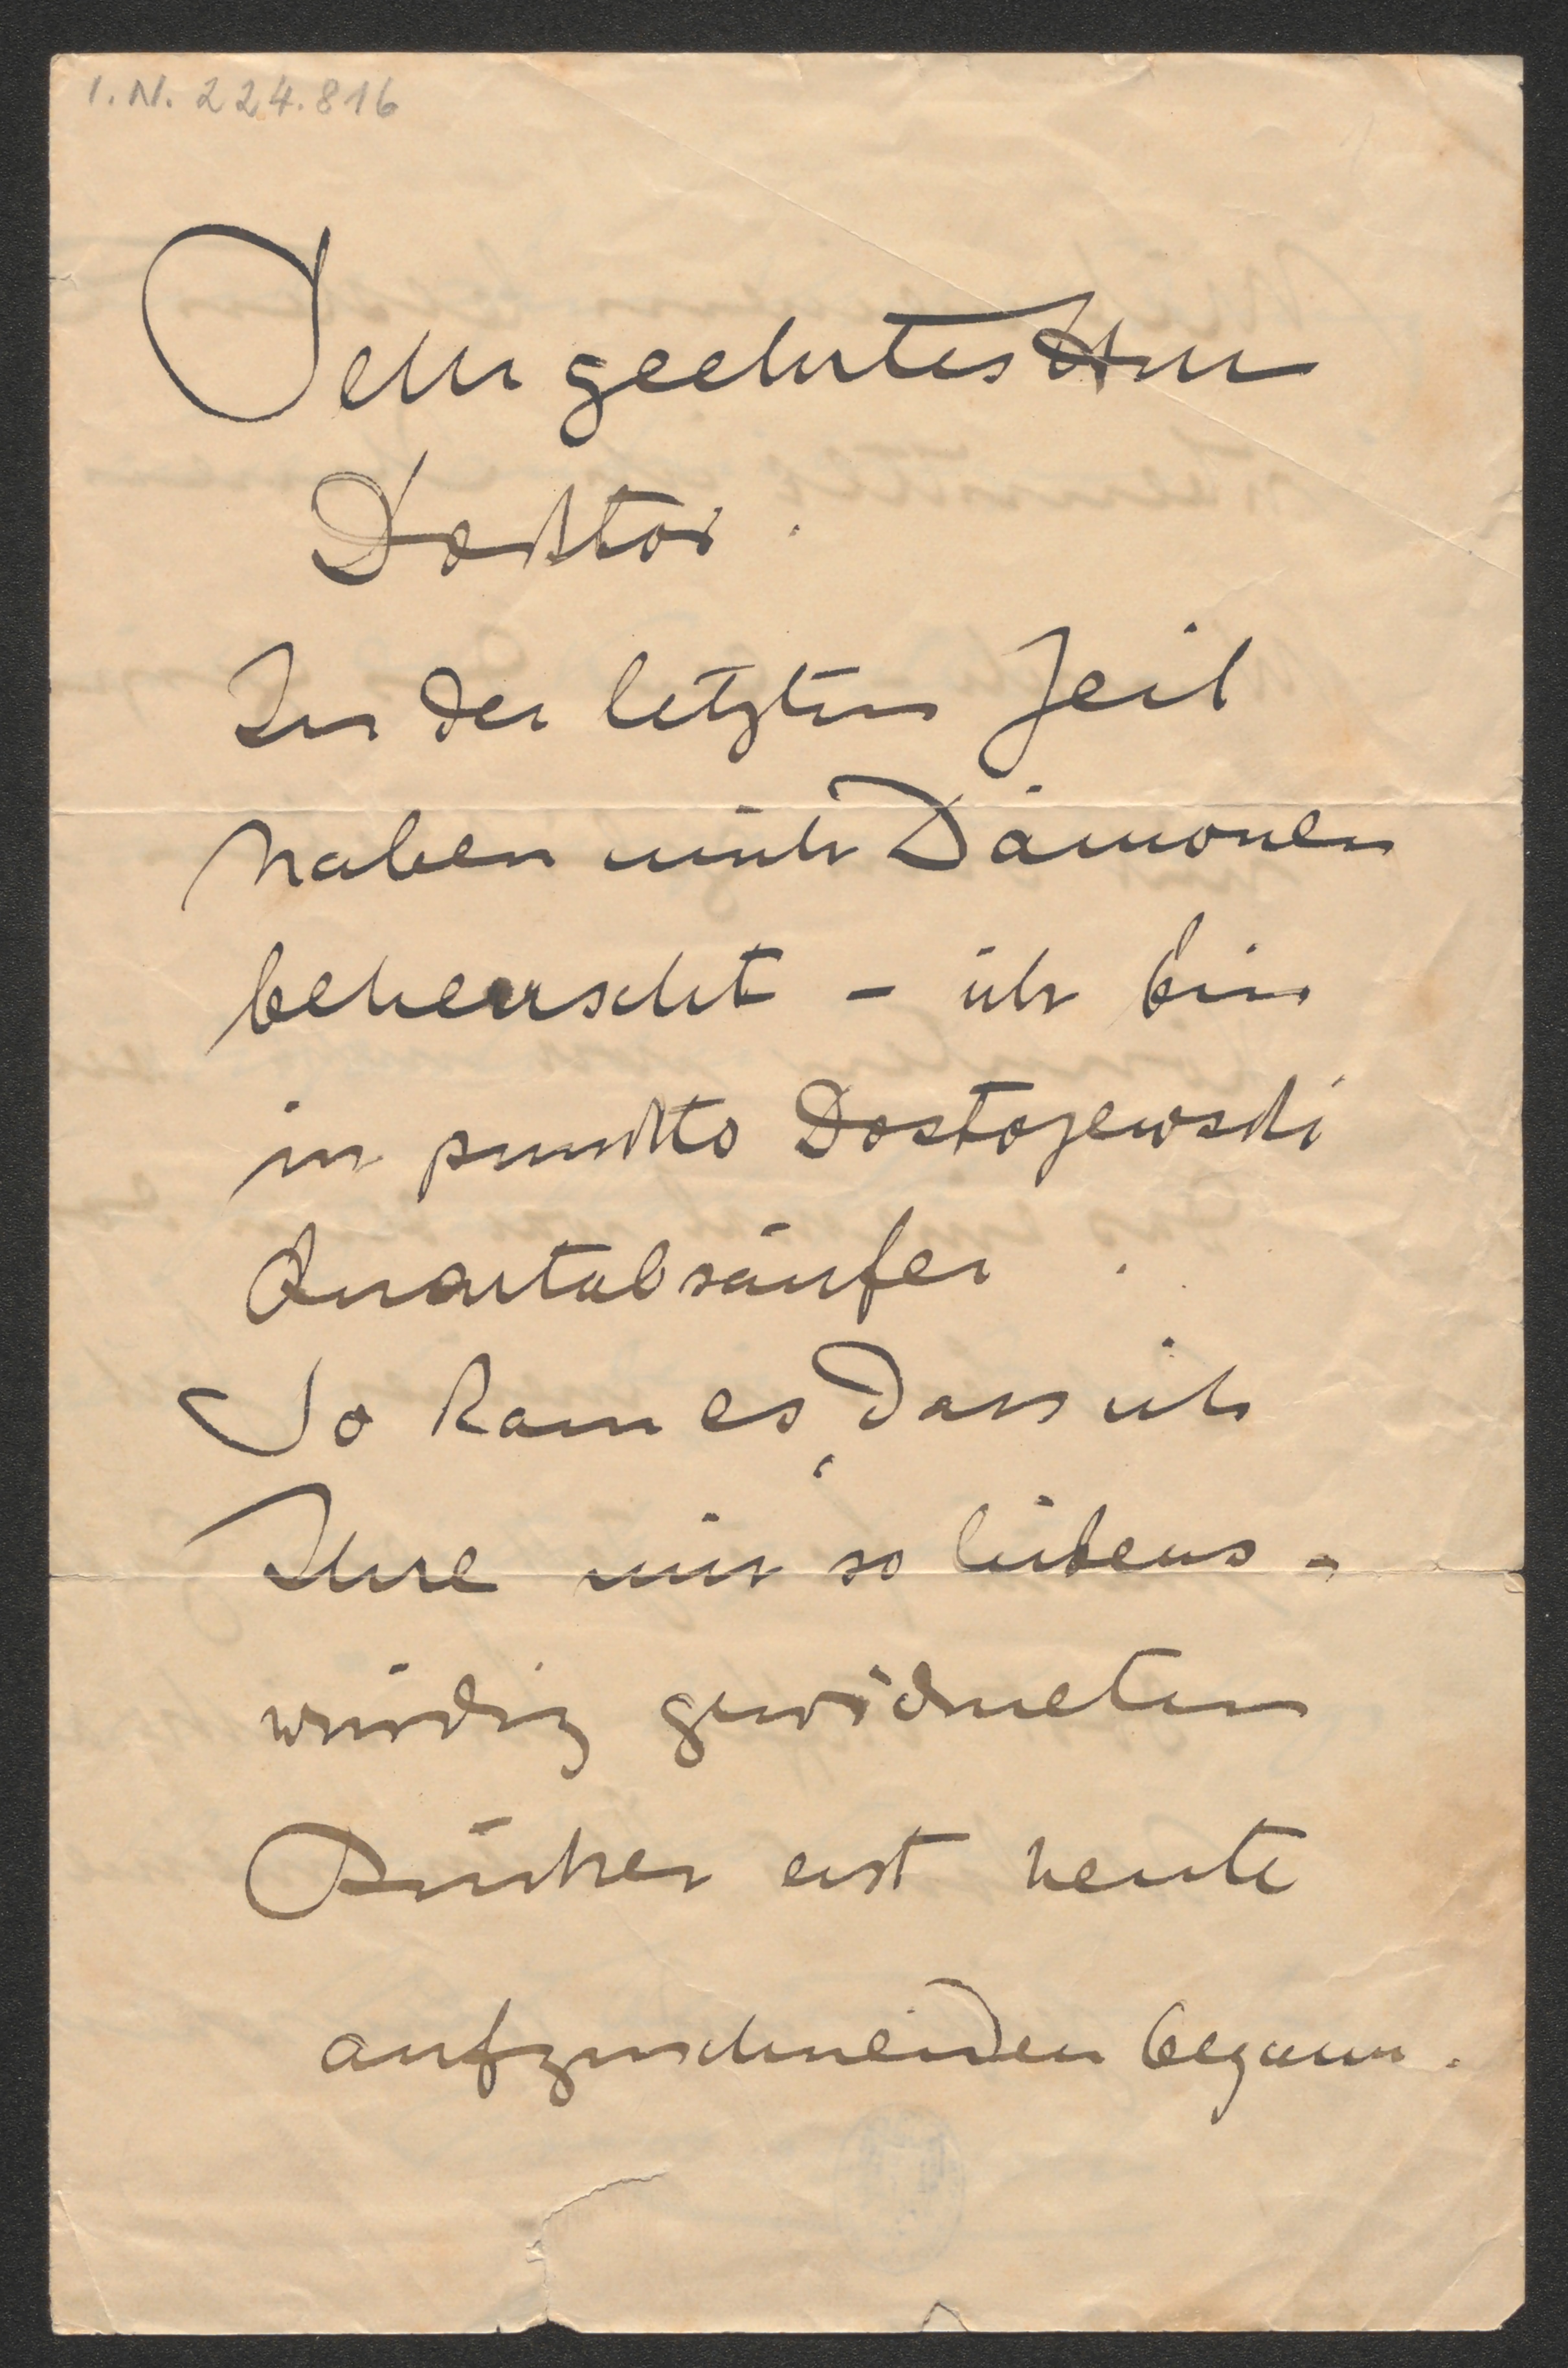 I.N. 224.816
Sehr geehrter Herr
Doktor.
In der letzten Zeit
haben mich Dämonen
beherrscht - ich bin
in punkto Dostojewski
Quartalsäufer.
So kam es, dass ich
Ihre mir so liebens-
würdig gewidmeten
Bücher erst heute
aufzuschneiden begann.